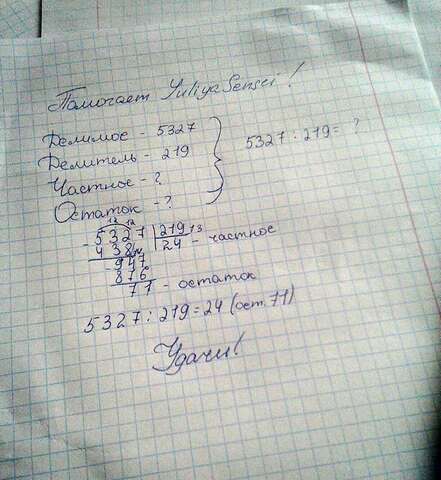 Помогает YuliyaSensei!
Делимое - 5327
Делитель - 219
Частное - ?
Остаток - ?
5327 : 219 = ?
5327 219
438 24 - частное
947
876
71 - остаток
5327 : 219 = 24 (ост. 71)
Удачи!